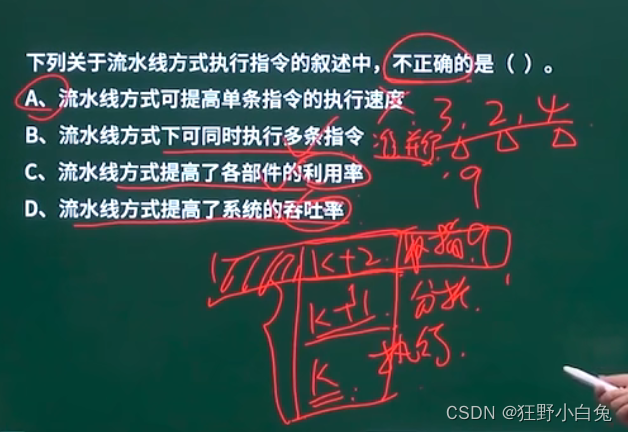 下列关于流水线方式执行指令的叙述中，不正确的是（ ）。
A、流水线方式可提高单条指令的执行速度
3, 2, 4
B、流水线方式下可同时执行多条指令
C、流水线方式提高了各部件的利用率
9
D、流水线方式提高了系统的吞吐率
K+2 取指
K+1 分析
K 执行
CSDN @狂野小白兔